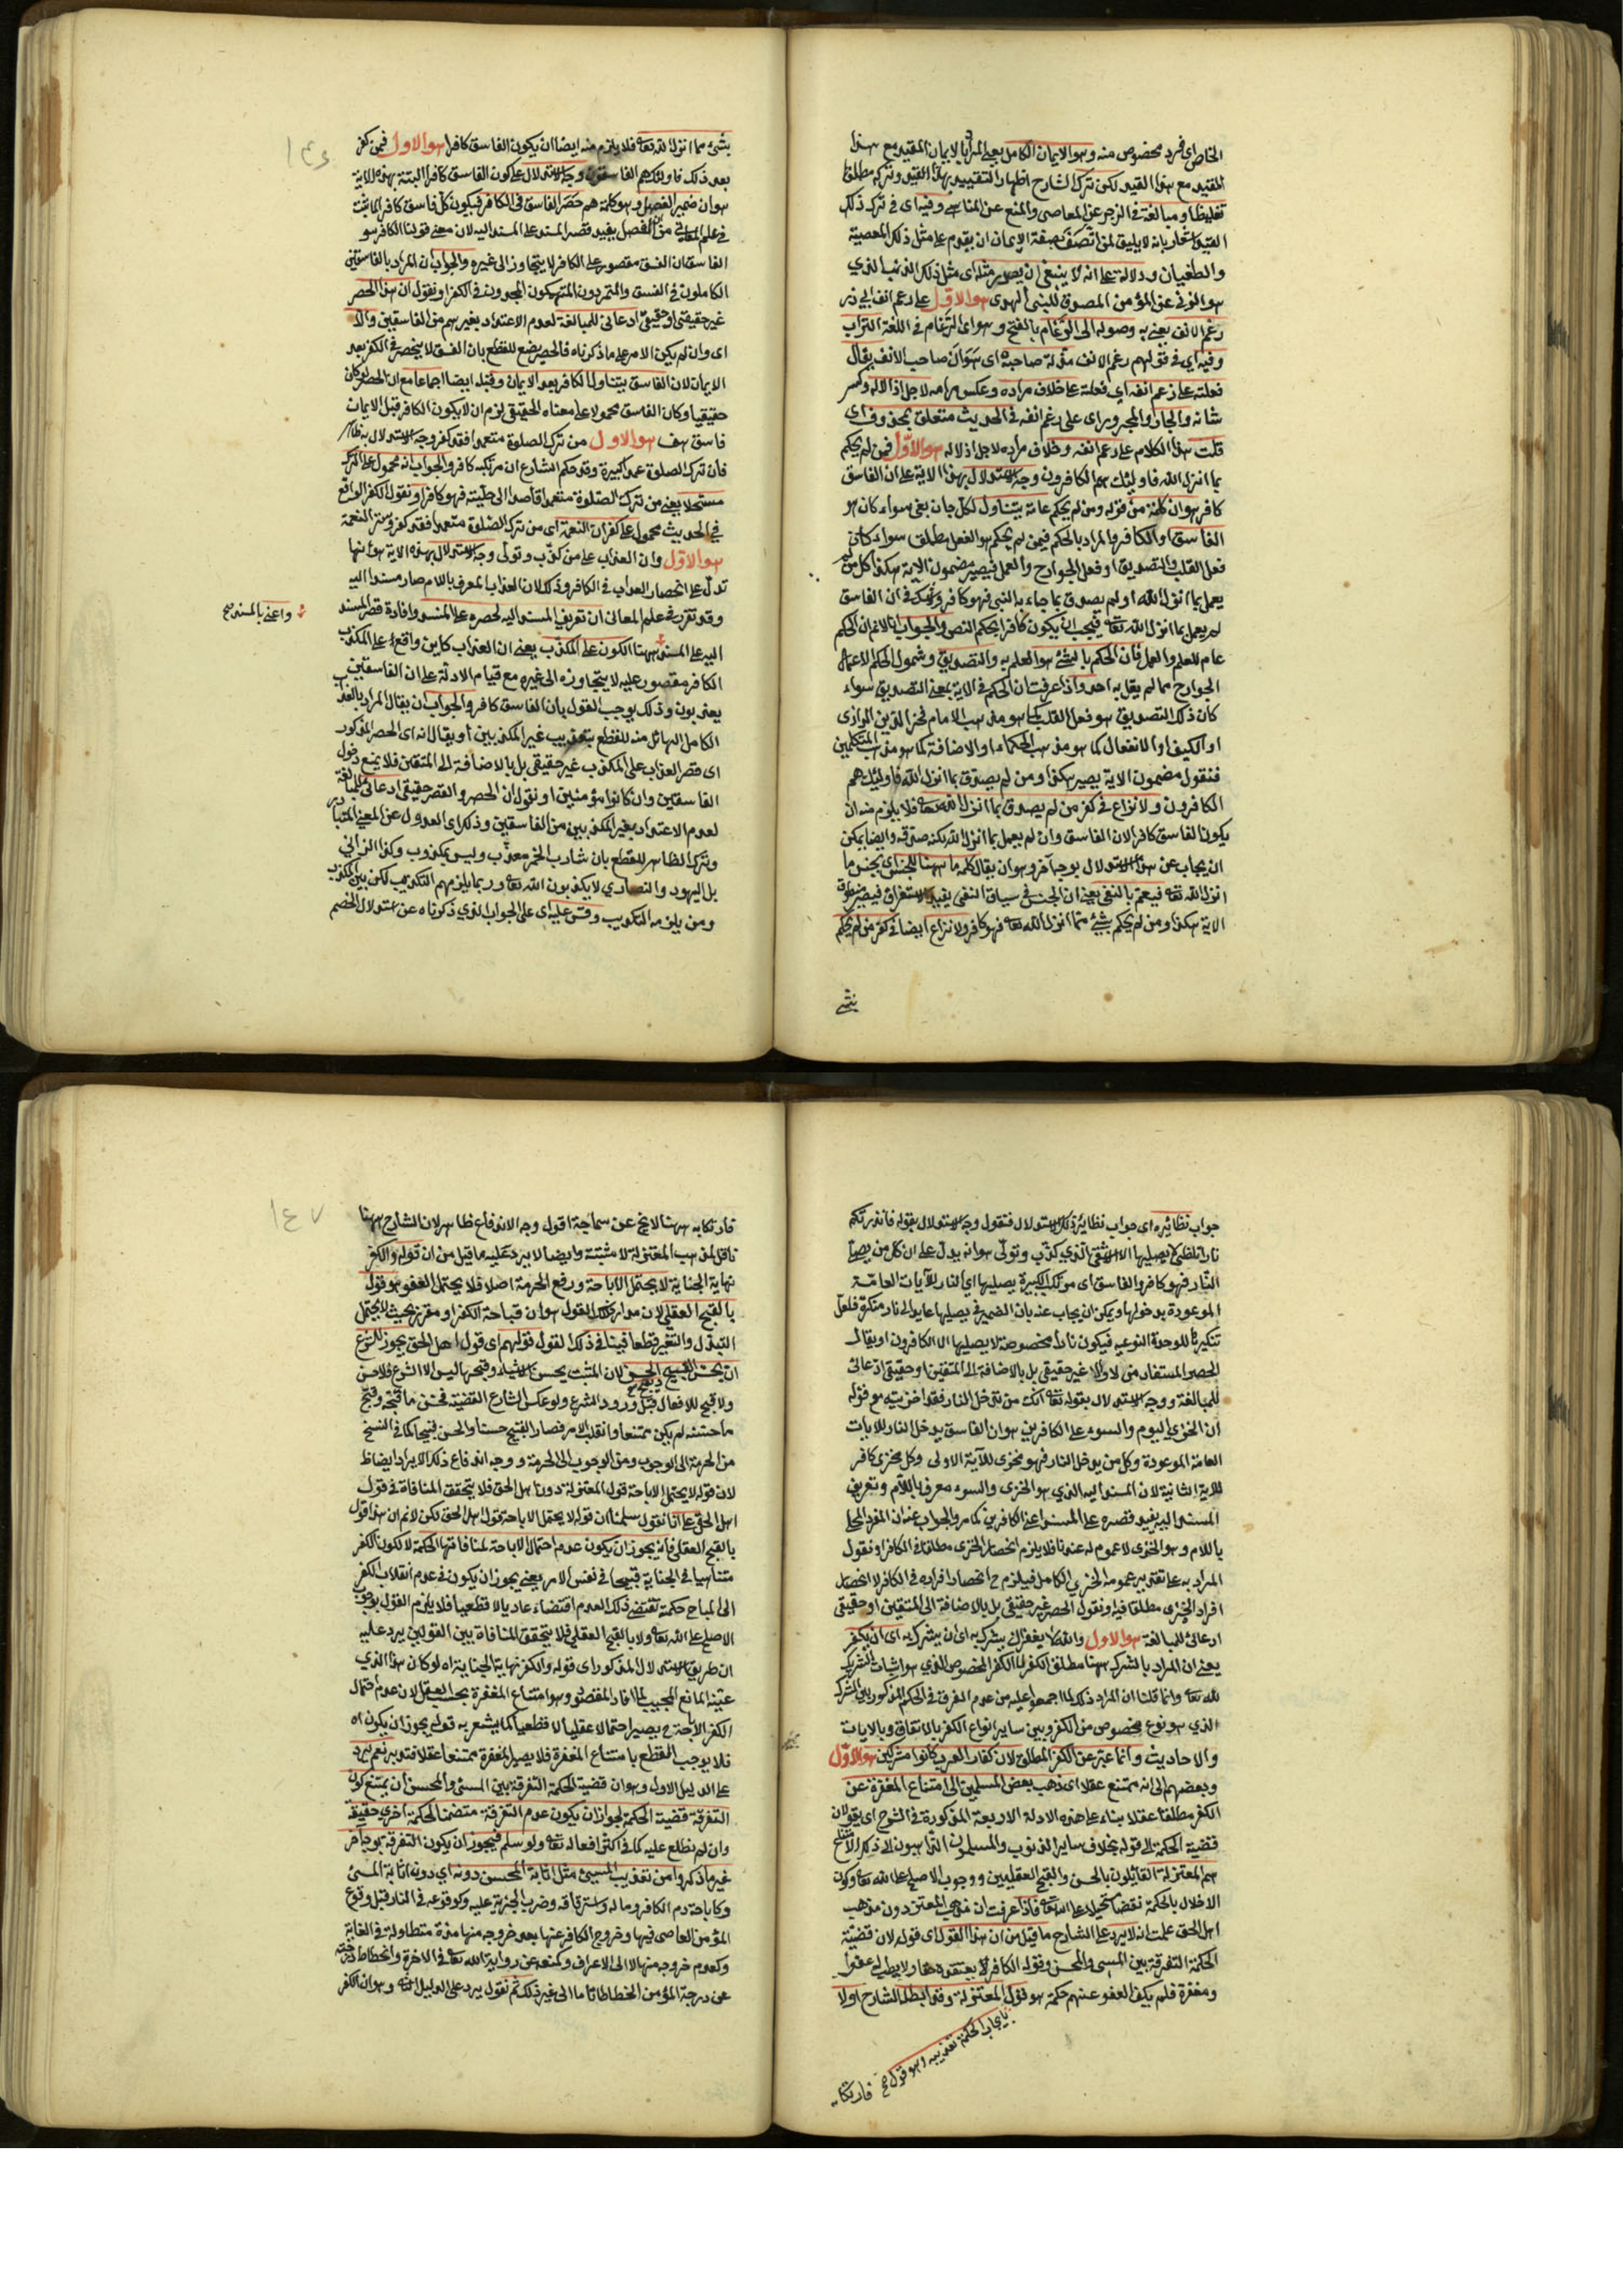 الخاص اى فرد مخصوص منه وهو الايمان الكامل يعنى المراد بالايمان المقيد مع هذا
المقيد مع هذا القيد لكن ترك الشارح اظهار التقييد بهذا القيد وتركه مطلقا
تغليظا ومبالغة فى الزجر عن المعاصى والمنع عن المناهى وفيه اى فى ترك ذلك
القيد اشعار بانه لا يليق لمن اتصف بصفة الايمان ان يقدم على مثل ذلك المعصية
والطغيان ودلالة على انه لا ينبغى ان يصدر مثله اى مثل ذلك الذنب الذى
هو الزنى عن المؤمن المصدق للنبى الهدى هو الاول على رغم انف ابى ذر
رغم الانف يعنى به وصوله الى الرغام بالفتح وهو اى الرغام فى اللغة التراب
وفيه اى فى قولهم رغم الانف مذلة صاحبه اى هوان صاحب الانف يقال
فعلته على رغم انفه اى فعلته على خلاف مراده وعكس مرامه لاجل اذلاله وكسر
شانه والجار والمجرور اى على رغم انفه فى الحديث متعلق بمحذوف اى
قلت هذا الكلام على رغم انفه وخلاف مراده لاجل اذلاله هو الاول فمن لم يحكم
بما انزل الله فاولئك هم الكافرون وجه الاستدلال بهذه الاية على ان الفاسق
كافر هو ان كلمة من فى قوله ومن لم يحكم عامة يتناول لكل جان يعنى سواء كان هو
الفاسق او الكافر والمراد بالحكم فيمن لم يحكم هو الفعل مطلقا سواء كان
فعل القلب والتصديق او فعل الجوارح والعمل فيصير مضمون الاية هكذا كل من لم
يعمل بما انزل الله او لم يصدق بما جاء به النبى فهو كافر ولا شك فى ان الفاسق
لم يعمل بما انزل الله تعالى فيجب ان يكون كافرا بحكم النص والجواب انا لا نم ان الحكم
عام للعلم والعمل فان الحكم بالشئ هو العلم به والتصديق وشمول الحكم لاعمال
الجوارح مما لم يقل به احد واذا عرفت ان الحكم فى الاية بمعنى التصديق سواء
كان ذلك التصديق هو فعل القلب كما هو مذهب الامام فخر الدين الرازى
او الكيف او الانفعال كما هو مذهب الحكماء او الاضافة كما هو مذهب المتكلمين
فنقول مضمون الاية يصير هكذا ومن لم يصدق بما انزل الله فاولئك هم
الكافرون ولا نزاع فى كفر من لم يصدق بما انزل الله تعالى فلا يلزم منه ان
يكون الفاسق كافرا لان الفاسق وان لم يعمل بما انزل الله لكنه صدقه وايضا يمكن
ان يجاب عن هذا الاستدلال بوجه آخر وهو ان يقال كلمة ما ههنا للجنس اى بجنس ما
انزل الله تعالى فيعم بالنفى يعنى ان الجنس فى سياق النفى يفيد الاستغراق فيصير منطوق
الاية هكذا ومن لم يحكم بشئ مما انزل الله تعالى فهو كافر ولا نزاع ايضا فى كفر من لم يحكم
بشئ
١٤٦
بشئ مما انزل الله تعالى فلا يلزم منه ايضا ان يكون الفاسق كافرا هو الاول فمن كفر
بعد ذلك فاولئك هم الفاسقون وجه الاستدلال على كون الفاسق كافرا البتة بهذه الاية
هو ان ضمير الفصل وهو كلمة هم حصر الفاسق فى الكافر فيكون كل فاسق كافرا لما ثبت
فى علم المعانى من ان الفصل يفيد قصر المسند على المسند اليه لان معنى قولنا الكافر هو
الفاسق ان الفسق مقصور على الكافر لا يتجاوز الى غيره والجواب ان المراد بالفاسقين
الكاملون فى الفسق والمتمردون المنهمكون فى الكفر او نقول ان هذا الحصر
غير حقيقى او حقيقى ادعائى للمبالغة لعدم الاعتداد بغيرهم من الفاسقين والا
اى وان لم يكن الامر على ما ذكرناه فالحصر يضع للقطع بان الفسق لا ينحصر فى الكفر بعد
الايمان لان الفاسق يتناول الكافر بعد الايمان وقبله ايضا اجماعا مع ان الحصر لو كان
حقيقيا وكان الفاسق محمولا على معناه الحقيقى لزم ان لا يكون الكافر قبل الايمان
فاسق هف هو الاول من ترك الصلوة متعمدا فقد كفر وجه الاستدلال به ظاهر
فان ترك الصلوة عمدا كبيرة وقد حكم الشارع ان مرتكبه كافر والجواب انه محمول على الترك
مستحلا يعنى من ترك الصلوة متعمدا قاصدا الى حليته فهو كافر او نقول الكفر الواقع
فى الحديث محمول على كفران النعمة اى من ترك الصلوة متعمدا فقد كفر وستر النعمة
هو الاول وان العذاب على من كذب وتولى وجه الاستدلال بهذه الاية هو انها
تدل على انحصار العذاب فى الكافر وذلك لان العذاب المعرف باللام صار مسندا اليه
وقد تقرر فى علم المعانى ان تعريف المسند اليه لحصره على المسند وافادة قصر المسند
واعنى بالمسند صح
اليه على المسند ههنا الكون على المكذب يعنى ان العذاب كاين واقع على المكذب
الكافر مقصور عليه لا يتجاوزه الى غيره مع قيام الادلة على ان الفاسقين
يعذبون وذلك يوجب القول بأن الفاسق كافر والجواب ان يقال المراد بالعذاب
الكامل الهائل منه للقطع بتعذيب غير المكذبين أو يقال انه اى الحصر المذكور
اى قصر العذاب على المكذب غير حقيقى بل بالاضافة الى المتقين فلا يمنع دخول
الفاسقين وان كانوا مؤمنين او نقول ان الحصر والقصر حقيقى ادعائى للمبالغة
لعدم الاعتداد بغير المكذبين من الفاسقين وذلك اى العدول عن المعنى المتبادر
وترك الظاهر للقطع بان شارب الخمر معذب وليس بمكذب وكذا الزانى
بل اليهود والنصارى لا يكذبون الله تعالى وربما يلزمهم التكذيب لكن بين المكذب
ومن يلزمه التكذيب وقس عليه اى على الجواب الذى ذكرناه عن استدلال الخصم
جواب نظائره اى جواب نظاير ذلك الاستدلال فنقول وجه الاستدلال بقوله فانذرتكم
نارا تلظى لا يصليها الا الاشقى الذى كذب وتولى هو انه يدل على ان كل من يصلى
النار فهو كافر والفاسق اى مرتكب الكبيرة يصليها اى النار للآيات العامة
الموعودة بدخولها ويمكن ان يجاب عنه بان الضمير فى يصليها عايد الى نار منكرة فلعل
تنكيرها للوحدة النوعية فيكون نارا مخصوصة لا يصليها الا الكافرون او يقال
الحصر المستفاد من لا والا غير حقيقى بل بالاضافة الى المتقين او حقيقى ادعائى
للمبالغة ووجه الاستدلال بقوله تعالى انك من تدخل النار فقد اخزيته مع قوله
ان الخزى اليوم والسوء على الكافرين هو ان الفاسق يدخل النار للايات
العامة الموعودة وكل من يدخل النار فهو مخزى للآية الاولى وكل مخزى كافر
للاية الثانية لان المسند اليه الذى هو الخزى والسوء معرف باللام وتعريف
المسند اليه يفيد قصره على المسند اعنى الكافرين كما مر والجواب عنه ان المفرد المحلى
باللام وهو الخزى لا عموم له عندنا فلا يلزم انحصار الخزى مطلقا فى الكافر او نقول
المراد به على تقدير عمومه الخزى الكامل فيلزم ح انحصار افراده فى الكافر لا انحصار
افراد الخزى مطلقا فيه او نقول الحصر غير حقيقى بل بالاضافة الى المتقين او حقيقى
ادعائى للمبالغة هو الاول والله لا يغفر ان يشرك به اى ان يشرك به اى ان يكفر
يعنى ان المراد بالشرك ههنا مطلق الكفر لا الكفر المخصوص الذى هو اثبات الشريك
لله تعالى وانما قلنا ان المراد ذلك لما اجمعوا عليه من عدم الفرق فى الحكم المذكور بين الشرك
الذى هو نوع مخصوص من الكفر وبين ساير انواع الكفر بالاتفاق وبالايات
والاحاديث وانما عبر عن الكفر المطلق لان كفار العرب كانوا مشركين هو الاول
وبعضهم الى انه ممتنع عقلا اى ذهب بعض المسلمين الى امتناع المغفرة عن
الكفر مطلقا عقلا بناء على هذه الادلة الاربعة المذكورة فى الشرح اى يقولان
قضية الحكمة الى قوله بخلاف ساير الذنوب والمسلمون الذاهبون الى ذلك الامتناع
هم المعتزلة القائلون بالحسن والقبح العقليين ووجوب الاصلح على الله تعالى وكون
الاخلال بالحكمة نقضا مستحيلا على الله تعالى فاذا عرفت ان مذهب المعتزلة دون مذهب
اهل الحق علمت انه لا يرد على الشارح ما قيل من ان هذا القول اى قوله لان قضية
الحكمة التفرقة بين المسئ والمحسن وقوله الكافر يعتقده حقا ولا يطلب له عفوا
ومغفرة فلم يكن العفو عنهم حكمة هو قول المعتزلة وقد ابطله الشارح اولا
بايجاب الحكمة تعذيبه وهو قول صح
فارتكابه
١٤٧
فارتكابه ههنا لا يخ عن سماجة اقول وجه الاندفاع ظاهر لان الشارح ههنا
ناقل لمذهب المعتزلة لا مثبتة وايضا لا يرد عليه ما قيل من ان قوله والكفر
نهاية الجناية لا يحتمل الاباحة ورفع الحرمة اصلا فلا يحتمل العفو هو قول
بالقبح العقلى لان مدار ذلك القول هو ان قباحة الكفر او مقرر بحيث لا يحتمل
التبدل والتغير قطعا فينافى ذلك القول قولهم اى قول اهل الحق يجوز للشرع
ان يحسن القبيح ويقبح الحسن لان المثبت بحسن الاشياء وقبحها ليس الا الشرع فلا حسن
ولا قبح للافعال قبل ورود الشرع ولو عكس الشارع القضية فحسن ما قبحه وقبح
ما حسنه لم يكن ممتنعا وانقلب الامر فصار القبيح حسنا والحسن قبيحا كما فى النسخ
من الحرمة الى الوجوب ومن الوجوب الى الحرمة ووجه اندفاع ذلك الايراد ايضا ظ
لان قوله لا يحتمل الاباحة قول المعتزلة دون اهل الحق فلا يتحقق المنافاة فى قول
اهل الحق على انا نقول سلمنا ان قوله لا يحتمل الاباحة قول اهل الحق لكن لانم ان هذا قول
بالقبح العقلى فانه يجوز ان يكون عدم احتمال الاباحة لمنافاتها الحكمة لا لكون الكفر
متناهيا فى الجناية قبيحا فى نفس الامر يعنى يجوز ان يكون فى عدم انقلاب الكفر
الى المباح حكمة تقتضى ذلك العدم اقتضاء عاديا لا قطعيا فلا يلزم القول بوجوب
الاصلح على الله تعالى ولا بالقبح العقلى فلا يتحقق المنافاة بين القولين يرد عليه
ان طريق الاستدلال المذكور اى قوله والكفر نهاية الجناية اه لو كان هذا الذى
عينه المانع المجيب لما افاد المقصود وهو امتناع المغفرة بحسب العقل لان عدم احتمال
الكفر الاباحة ح يصير احتمالا عقليا لا قطعيا كما يشعر به قوله يجوز ان يكون اه
فلا يوجب القطع بامتناع المغفرة فلا يصير المغفرة ممتنعا عقلا فتدبر نعم يرد
على الدليل الاول وهو ان قضية الحكمة التفرقة بين المسئ والمحسن أن يمتنع كون
التفرقة قضية الحكمة لجواز ان يكون عدم التفرقة متضمنا لحكمة اخرى خفية
وان لم نطلع عليه كما فى اكثر افعاله تعالى ولو سلم فيجوز ان يكون التفرقة بوجه آخر
غير ما ذكروا من تعذيب المسئ مثل اثابة المحسن دونه اى دون اثابة المسئ
وكاباحة دم الكافر وماله واسترقاقه وضرب الجزية عليه وكوقوعه فى النار قبل وقوع
المؤمن العاصى فيها وخروج الكافر عنها بعد خروجه منها مدة متطاولة فى الغاية
وكعدم خروجه منها الا الى الاعراف وكمنعه عن رواية الله تعالى فى الاخرة وانحطاط درجته
عن درجة المؤمن انحطاطا تاما الى غير ذلك ثم نقول يرد على الدليل انه وهو ان الكفر